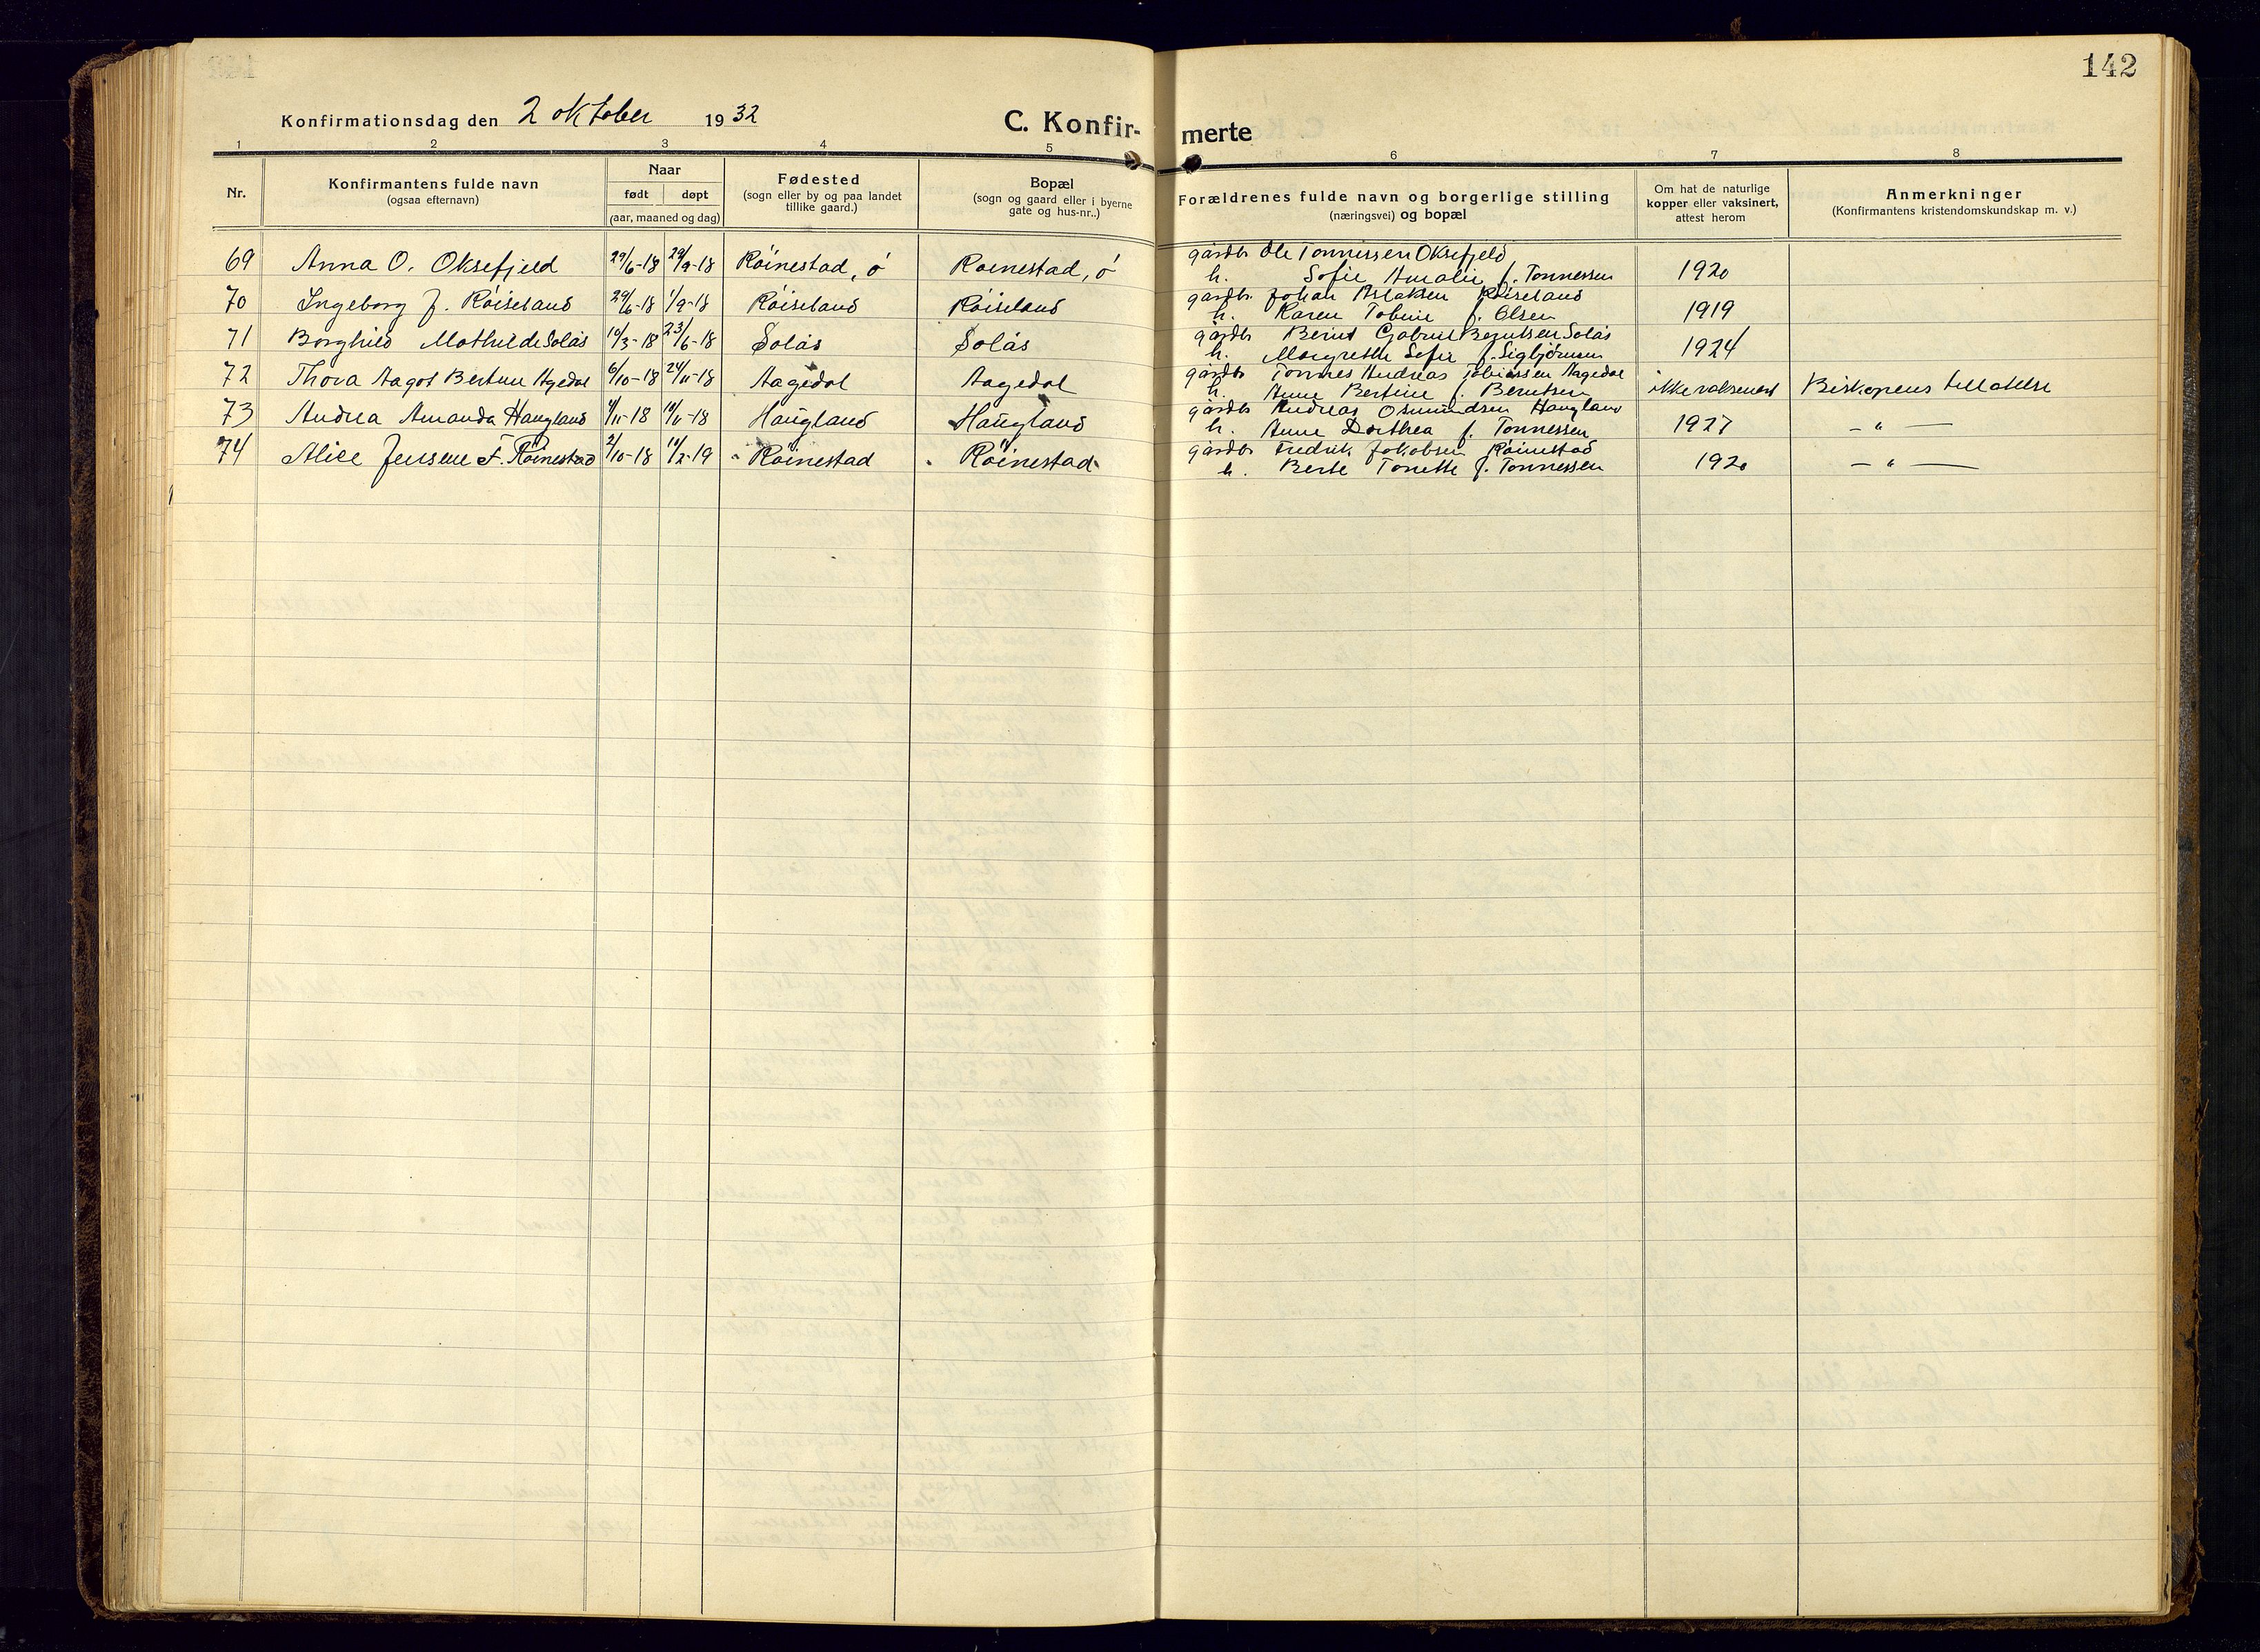 142
Konfirmationsdag den 2 oktober 1932
C. Konfir-merte
1 2 3 4 5 6 7 8
Nr.
Konfirmantens fulde navn
(ogsaa efternavn)
Naar
født døpt
(aar, maaned og dag)
Fødested
(sogn eller by og paa landet
tillike gaard.)
Bopæl
(sogn og gaard eller i byerne
gate og hus-nr..)
Forældrenes fulde navn og borgerlige stilling
(næringsvei) og bopæl
Om hat de naturlige
kopper eller vaksinert,
attest herom
Anmerkninger
(Konfirmantens kristendomskundskap m. v.)
69 Anna O. Oksefjeld 29/6-18 29/9-18 Röinestad, ö Roinestad, ö gårdbr Ole Tønnessen Oksefjeld
h. Sofie Amalie f. Tønnessen 1920
70 Ingeborg J. Röiseland 29/6-18 1/9-18 Röiseland Röiseland gårdbr Johan Aslaksen Röiseland
h. Karen Tobine f. Olsen 1919
71 Borghild Mathilde Solås 10/3-18 23/6-18 Solås Solås gårdbr Bernt Gabriel Berntsen Solås
h. Margrethe Sofie f. Sigbjörnsen 1924
72 Thora Aagot Bertine Agedal 6/10-18 24/11-18 Aagedal Aagedal gårdbr Tønnes Andreas Tobiassen Aagedal
h. Anne Bertine f. Berntsen ikke vaksenert Biskopens tillatelse
73 Andrea Amanda Haugland 4/11-18 10/11-18 Haugland Haugland gårdbr Andreas Osmundsen Haugland
h. Anne Dorthea f. Tønnessen 1927 — " —
74 Alice Jensine F. Röinestad 2/10-18 11/2-19 Röinestad Röinestad gårdbr Fredrik Jakobsen Röinestad
h. Berte Tonette f. Tønnessen 1920 — " —